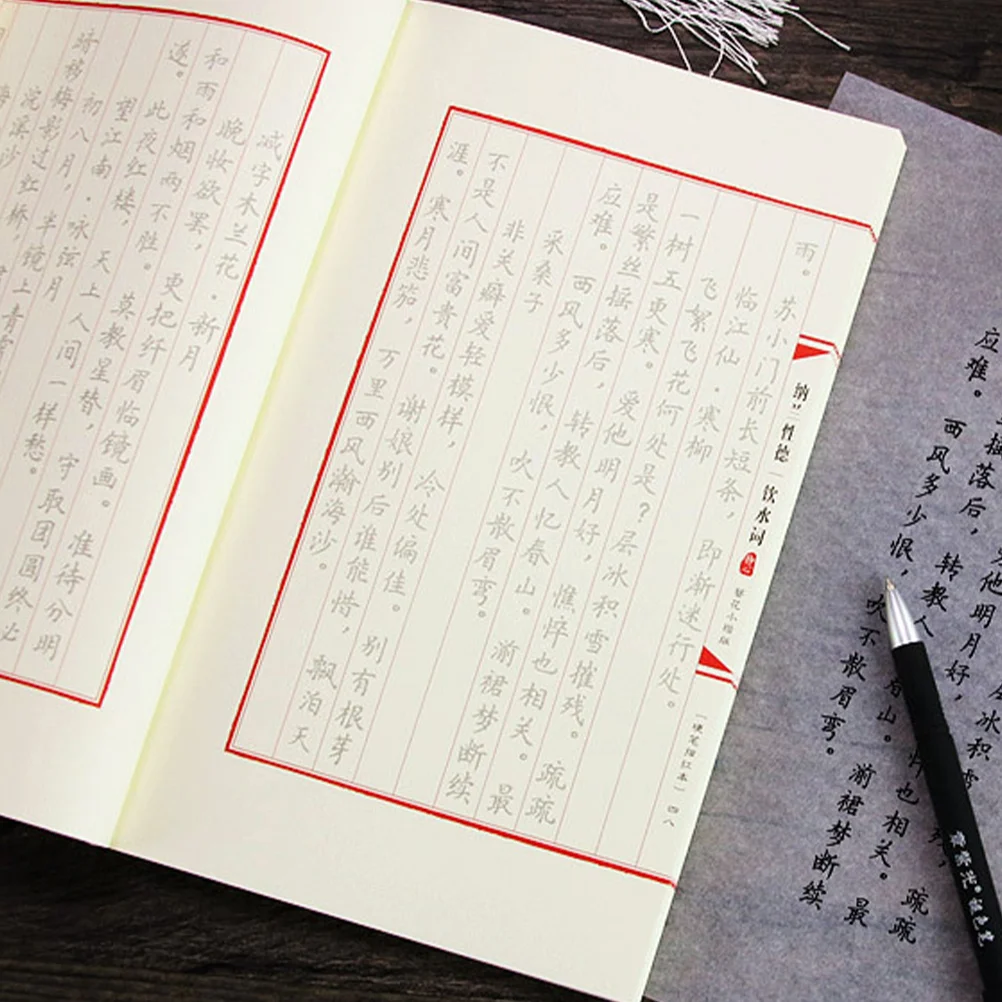 雨。苏小门前长短条，即渐迷行处。
临江仙·寒柳
飞絮飞花何处是？层冰积雪摧残。疏疏
一树五更寒。爱他明月好，憔悴也相关。最
是繁丝摇落后，转教人忆春山。湔裙梦断续
应难。西风多少恨，吹不散眉弯。
采桑子
非关癖爱轻模样，冷处偏佳。别有根芽
不是人间富贵花。谢娘别后谁能惜，飘泊天
涯。寒月悲笳，万里西风瀚海沙。
纳兰性德｜饮水词
簪花小楷版
［硬笔描红本］四八
减字木兰花·新月
晚妆欲罢，更把纤眉临镜画。准待分明
和雨和烟两不胜。莫教星替，守取团圆终必
遂。此夜红楼，天上人间一样愁。
望江南·咏弦月
初八月，半镜上青
移梅影过红桥，
浣溪沙
冰积雪 疏疏
他明月好，也相关。最
摇落后，转教人 山。湔裙梦断续
应难。西风多少恨，吹不散眉弯。